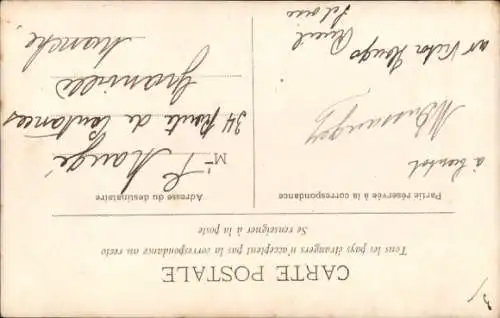 CARTE POSTALE
Tous les pays étrangers n'acceptent pas la correspondance au recto
Se renseigner à la poste
Partie réservée à la correspondance
à bientôt
av Victor Hugo
Rueil
Adresse du destinataire
M
34 Route de Coutances
Granville
Manche